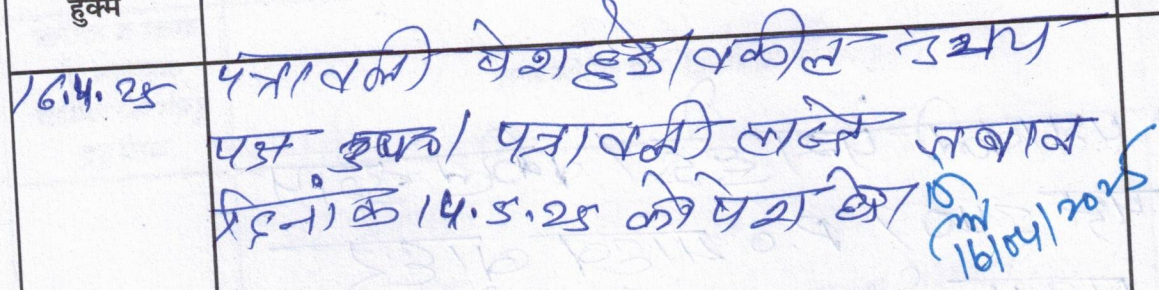 हुक्म
16.4.25 पत्रावली पेश हुई। वकील उभय
पक्ष उप०। पत्रावली वास्ते जबाव
दिनांक 14.5.25 को पेश हो।
16/04/2025